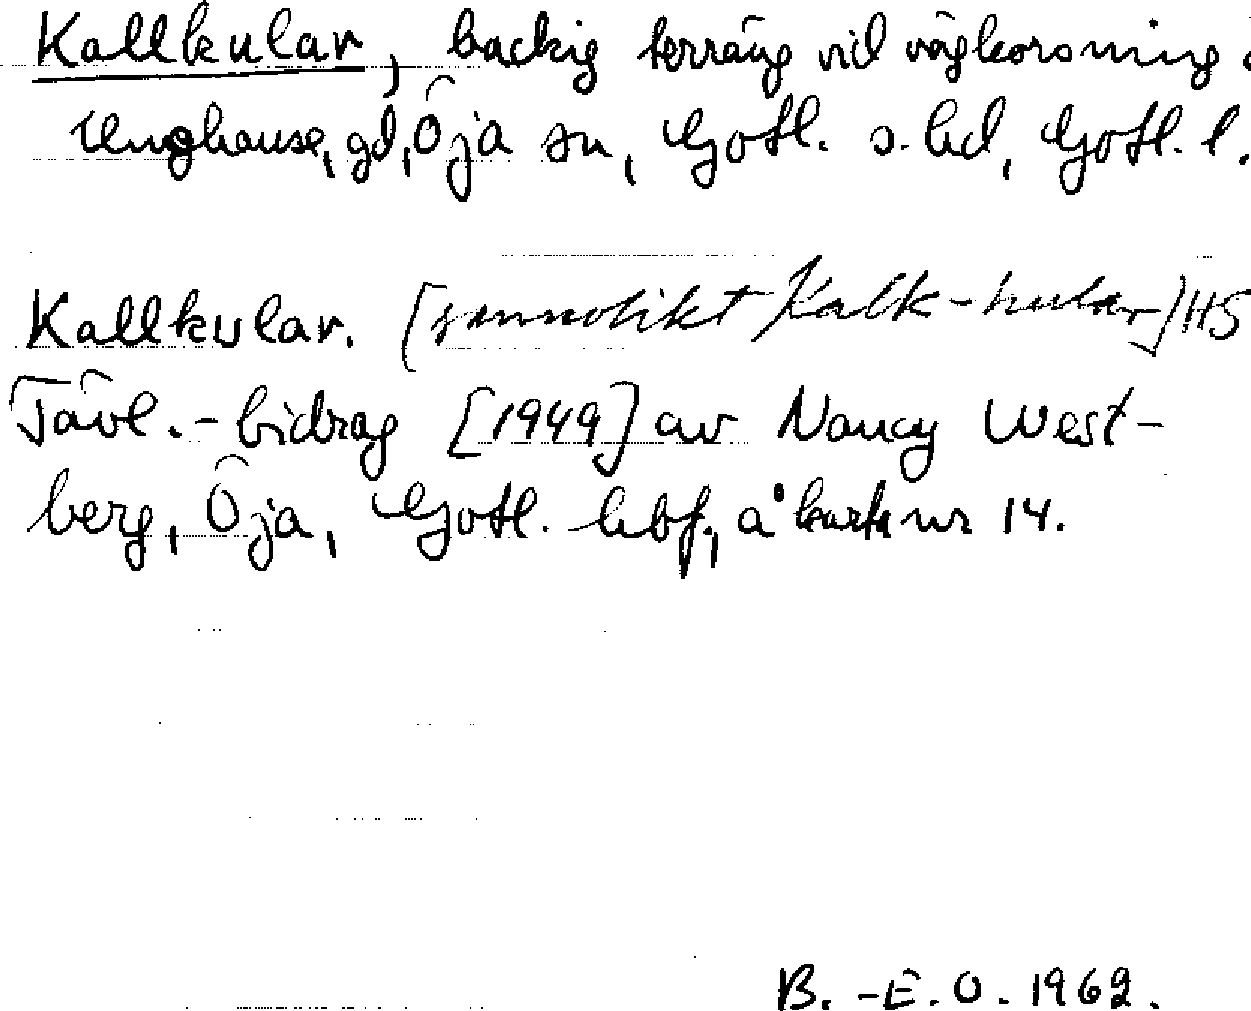 Kallkular, backig terräng vid vägkorsning
Unghanse, gd, Öja sn, Gotl. s. hd, Gotl. l.
Kallkular. [sannolikt Kalk-hular] HS
Tävl.-bidrag [1949] av Nancy West-
berg, Öja, Gotl. hbf., å karta nr 14.
B.-E.O. 1962.